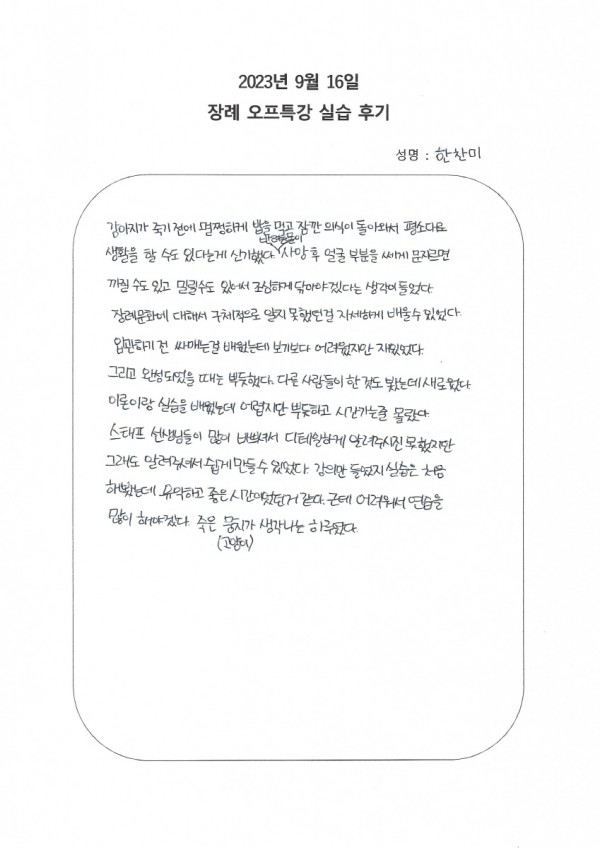 2023년 9월 16일
장례 오프특강 실습 후기
성명 : 한찬미
강아지가 죽기 전에 멀쩡하게 밥을 먹고 잠깐 의식이 돌아와서 평소대로
반려동물이
생활을 할 수도 있다는게 신기했다. 사망 후 얼굴 부분을 쎄게 문지르면
까질 수도 있고 밀릴수도 있어서 조심하게 닦아야겠다는 생각이 들었다.
장례문화에 대해서 구체적으로 알지 못했던걸 자세하게 배울수 있었다.
입관하기 전 싸매는걸 배웠는데 보기보다 어려웠지만 재밌었다.
그리고 완성되었을 때는 뿌듯했다. 다른 사람들이 한 것도 봤는데 새로웠다
이론이랑 실습을 배웠는데 어렵지만 뿌듯하고 시간가는줄 몰랐다
스태프 선생님들이 많이 바쁘셔서 디테일하게 알려주시진 못했지만
그래도 알려주셔서 쉽게 만들수 있었다. 강의만 들었지 실습은 처음
해봤는데 유익하고 좋은 시간이었던거 같다. 근데 어려워서 연습을
많이 해야겠다. 죽은 뭉치가 생각나는 하루였다.
(고양이)